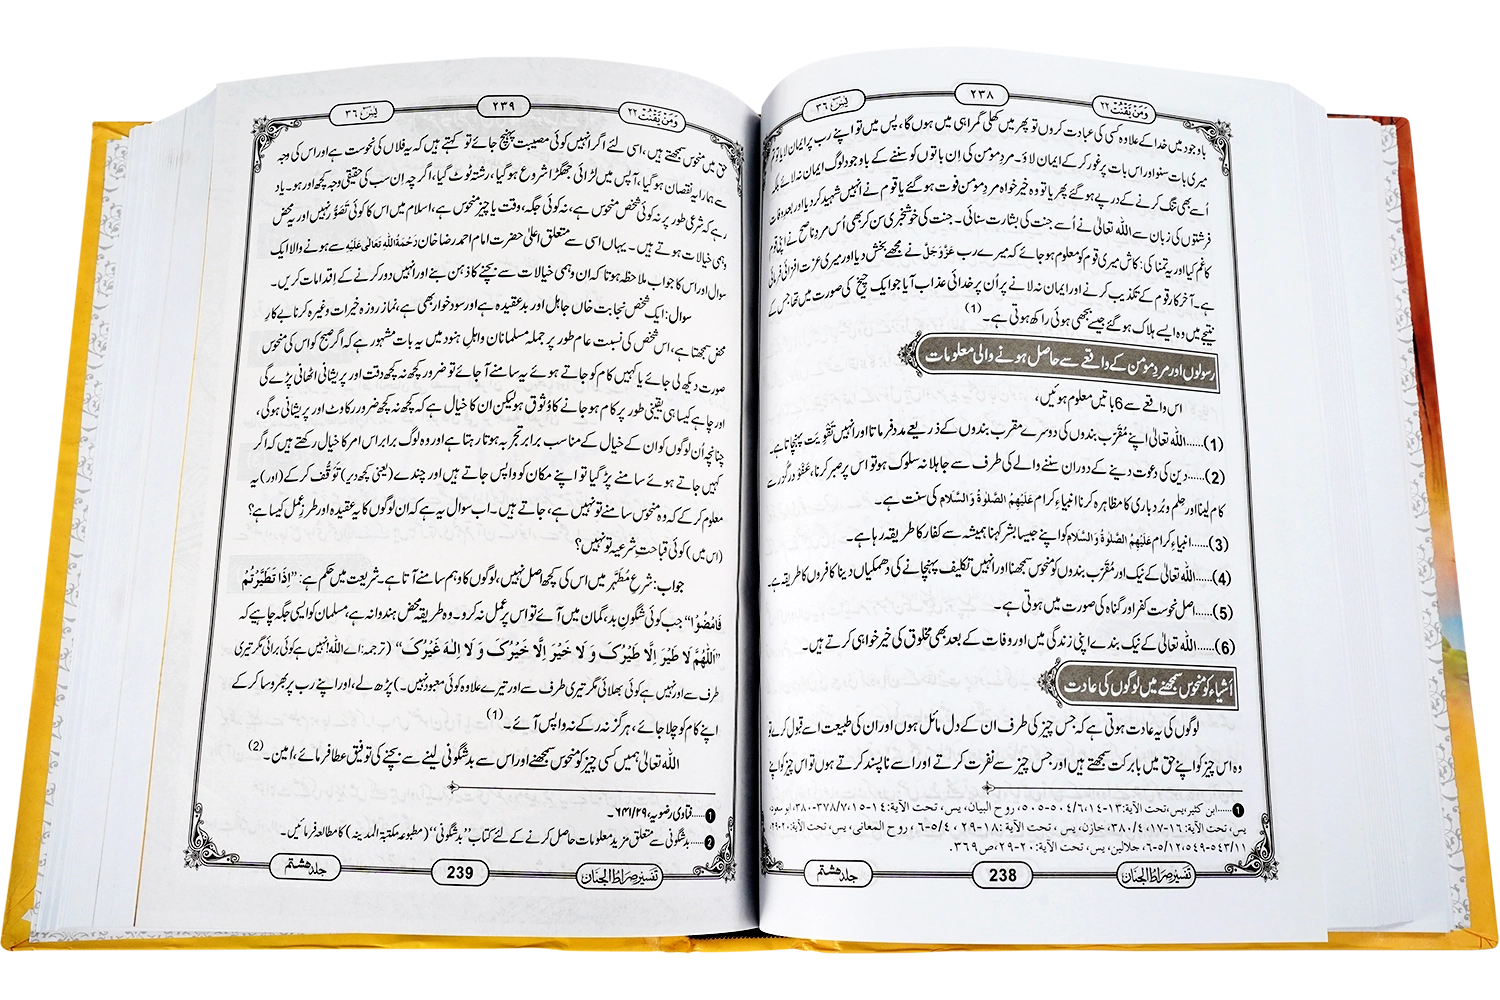 وَمَنْ يَّقْنُتْ ٢٢
٢٣٨
يٰسٓ ٣٦
باوجود میں خدا کے علاوہ کسی کی عبادت کروں تو پھر میں کھلی گمراہی میں ہوں گا، پس میں تو اپنے رب پر ایمان لایا تو تم
میری بات سنو اور اس بات پر غور کر کے ایمان لاؤ۔ مردِ مومن کی اِن باتوں کو سننے کے باوجود لوگ ایمان نہ لائے بلکہ
اُسے بھی تنگ کرنے کے درپے ہو گئے پھر یا تو وہ خیر خواہ مردِ مومن فوت ہو گئے یا قوم نے انہیں شہید کر دیا اور بعدِ وفات
فرشتوں کی زبان سے اللہ تعالیٰ نے اُسے جنت کی بشارت سنائی۔ جنت کی خوشخبری سن کر بھی اُس مردِ ناصح نے اپنی قوم
کا غم کیا اور یہ تمنا کی: کاش میری قوم کو معلوم ہو جائے کہ میرے رب عَزَّوَجَلَّ نے مجھے بخش دیا اور میری عزت افزائی فرمائی
ہے۔ آخر کار قوم کے تکذیب کرنے اور ایمان نہ لانے پر اُن پر خدائی عذاب آیا جو ایک چیخ کی صورت میں تھا جس کے
نتیجے میں وہ ایسے ہلاک ہو گئے جیسے بجھی ہوئی راکھ ہوتی ہے۔ (1)
رسولوں اور مردِ مومن کے واقعے سے حاصل ہونے والی معلومات
اس واقعے سے 6 باتیں معلوم ہوئیں،
(1)......اللہ تعالیٰ اپنے مُقَرَّب بندوں کی دوسرے مقرب بندوں کے ذریعے مدد فرماتا اور انہیں تَقْوِیَت پہنچاتا ہے۔
(2)......دین کی دعوت دینے کے دوران سننے والے کی طرف سے جاہلانہ سلوک ہو تو اس پر صبر کرنا، عَفْو و درگزر سے
کام لینا اور حلم و بُردباری کا مظاہرہ کرنا انبیاءِ کرام عَلَيْهِمُ الصَّلٰوةُ وَالسَّلَام کی سنت ہے۔
(3)......انبیاءِ کرام عَلَيْهِمُ الصَّلٰوةُ وَالسَّلَام کو اپنے جیسا بشر کہنا ہمیشہ سے کفار کا طریقہ رہا ہے۔
(4)......اللہ تعالیٰ کے نیک اور مُقَرَّب بندوں کو منحوس سمجھنا اور انہیں تکلیف پہنچانے کی دھمکیاں دینا کافروں کا طریقہ ہے۔
(5)......اصل نحوست کفر اور گناہ کی صورت میں ہوتی ہے۔
(6)......اللہ تعالیٰ کے نیک بندے اپنی زندگی میں اور وفات کے بعد بھی مخلوق کی خیر خواہی کرتے ہیں۔
اَشیاء کو منحوس سمجھنے میں لوگوں کی عادت
لوگوں کی یہ عادت ہوتی ہے کہ جس چیز کی طرف ان کے دل مائل ہوں اور ان کی طبیعت اسے قبول کرے تو
وہ اس چیز کو اپنے حق میں بابرکت سمجھتے ہیں اور جس چیز سے نفرت کرتے اور اسے ناپسند کرتے ہوں تو اس چیز کو اپنے
1......ابن کثیر، یس، تحت الآیة: ١٣-١٤، ٥٠٤/٦-٥٠٥، روح البیان، یس، تحت الآیة: ١٤-١٥، ٣٧٨/٧-٣٨٠، ابو سعود،
یس، تحت الآیة: ١٦-١٧، ٣٨٠/٤، خازن، یس، تحت الآیة: ١٨-٢٩، ٥/٤-٦، روح المعانی، یس، تحت الآیة: ٢٠-٢٩،
٥٤٣/١١-٥٤٩، ٥/١٢-٦، جلالین، یس، تحت الآیة: ٢٠-٢٩، ص٣٦٩.
تفسیر صراط الجنان
238
جلد ہشتم
وَمَنْ يَّقْنُتْ ٢٢
٢٣٩
يٰسٓ ٣٦
حق میں منحوس سمجھتے ہیں، اسی لئے اگر انہیں کوئی مصیبت پہنچ جائے تو کہتے ہیں کہ یہ فلاں کی نحوست ہے اور اس کی وجہ
سے ہمارا یہ نقصان ہو گیا، آپس میں لڑائی جھگڑا شروع ہو گیا، رشتہ ٹوٹ گیا، اگرچہ اِن سب کی حقیقی وجہ کچھ اور ہو۔ یاد
رہے کہ شرعی طور پر نہ کوئی شخص منحوس ہے، نہ کوئی جگہ، وقت یا چیز منحوس ہے، اسلام میں اس کا کوئی تَصَوُّر نہیں اور یہ محض
وہمی خیالات ہوتے ہیں۔ یہاں اسی سے متعلق اعلیٰ حضرت امام احمد رضا خان رَحْمَةُ اللهِ تَعَالٰى عَلَيْهِ سے ہونے والا ایک
سوال اور اس کا جواب ملاحظہ ہو تا کہ ان وہمی خیالات سے بچنے کا ذہن بنے اور انہیں دور کرنے کے اِقدامات کریں۔
سوال: ایک شخص نجابت خاں جاہل اور بد عقیدہ ہے اور سود خوار بھی ہے، نماز روزہ خیرات وغیرہ کرنا بے کارِ
محض سمجھتا ہے، اس شخص کی نسبت عام طور پر جملہ مسلمانان و اہلِ ہنود میں یہ بات مشہور ہے کہ اگر صبح کو اس کی منحوس
صورت دیکھ لی جائے یا کہیں کام کو جاتے ہوئے یہ سامنے آ جائے تو ضرور کچھ نہ کچھ دقت اور پریشانی اٹھانی پڑے گی
اور چاہے کیسا ہی یقینی طور پر کام ہو جانے کا وُثوق ہو لیکن ان کا خیال ہے کہ کچھ نہ کچھ ضرور رکاوٹ اور پریشانی ہوگی،
چنانچہ اُن لوگوں کو ان کے خیال کے مناسب برابر تجربہ ہوتا رہتا ہے اور وہ لوگ برابر اس امر کا خیال رکھتے ہیں کہ اگر
کہیں جاتے ہوئے سامنے پڑ گیا تو اپنے مکان کو واپس جاتے ہیں اور چندے (یعنی کچھ دیر) تَوَقُّف کر کے (اور) یہ
معلوم کر کے کہ وہ منحوس سامنے تو نہیں ہے، جاتے ہیں۔ اب سوال یہ ہے کہ ان لوگوں کا یہ عقیدہ اور طرزِ عمل کیسا ہے؟
(اس میں) کوئی قباحتِ شرعیہ تو نہیں؟
جواب: شرعِ مُطَہَّر میں اس کی کچھ اصل نہیں، لوگوں کا وہم سامنے آتا ہے۔ شریعت میں حکم ہے: "اِذَا تَطَيَّرْتُمْ
فَامْضُوْا" جب کوئی شگونِ بد، گمان میں آئے تو اس پر عمل نہ کرو۔ وہ طریقہ محض ہندوانہ ہے، مسلمان کو ایسی جگہ چاہیے کہ
"اَللّٰهُمَّ لَا طَيْرَ اِلَّا طَيْرُكَ وَ لَا خَيْرَ اِلَّا خَيْرُكَ وَ لَا اِلٰهَ غَيْرُكَ" (ترجمہ: اے اللہ! نہیں ہے کوئی برائی مگر تیری
طرف سے اور نہیں ہے کوئی بھلائی مگر تیری طرف سے اور تیرے علاوہ کوئی معبود نہیں۔) پڑھ لے، اور اپنے رب پر بھروسا کر کے
اپنے کام کو چلا جائے، ہرگز نہ رکے نہ واپس آئے۔ (1)
اللہ تعالیٰ ہمیں کسی چیز کو منحوس سمجھنے اور اس سے بدشگونی لینے سے بچنے کی توفیق عطا فرمائے، امین۔ (2)
1......فتاویٰ رضویہ، ۶۴۱/۲۹۔
2......بدشگونی سے متعلق مزید معلومات حاصل کرنے کے لئے کتاب "بدشگونی" (مطبوعہ مکتبۃ المدینہ) کا مطالعہ فرمائیں۔
تفسیر صراط الجنان
239
جلد ہشتم